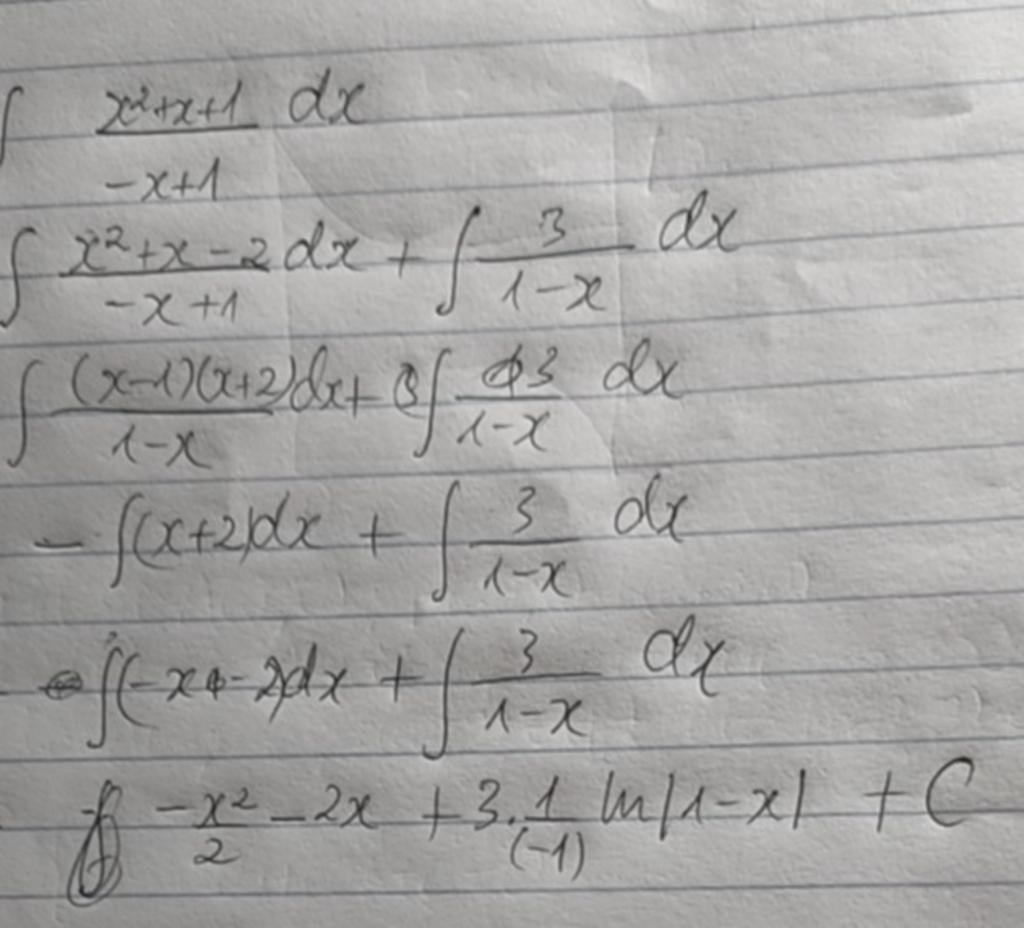 ∫ x²+x+1 / -x+1 dx
∫ x²+x-2 / -x+1 dx + ∫ 3 / 1-x dx
∫ (x-1)(x+2) / 1-x dx + ∫ 3 / 1-x dx
- ∫(x+2)dx + ∫ 3 / 1-x dx
∫(-x-2)dx + ∫ 3 / 1-x dx
-x²/2 - 2x + 3. 1/(-1) ln|1-x| + C